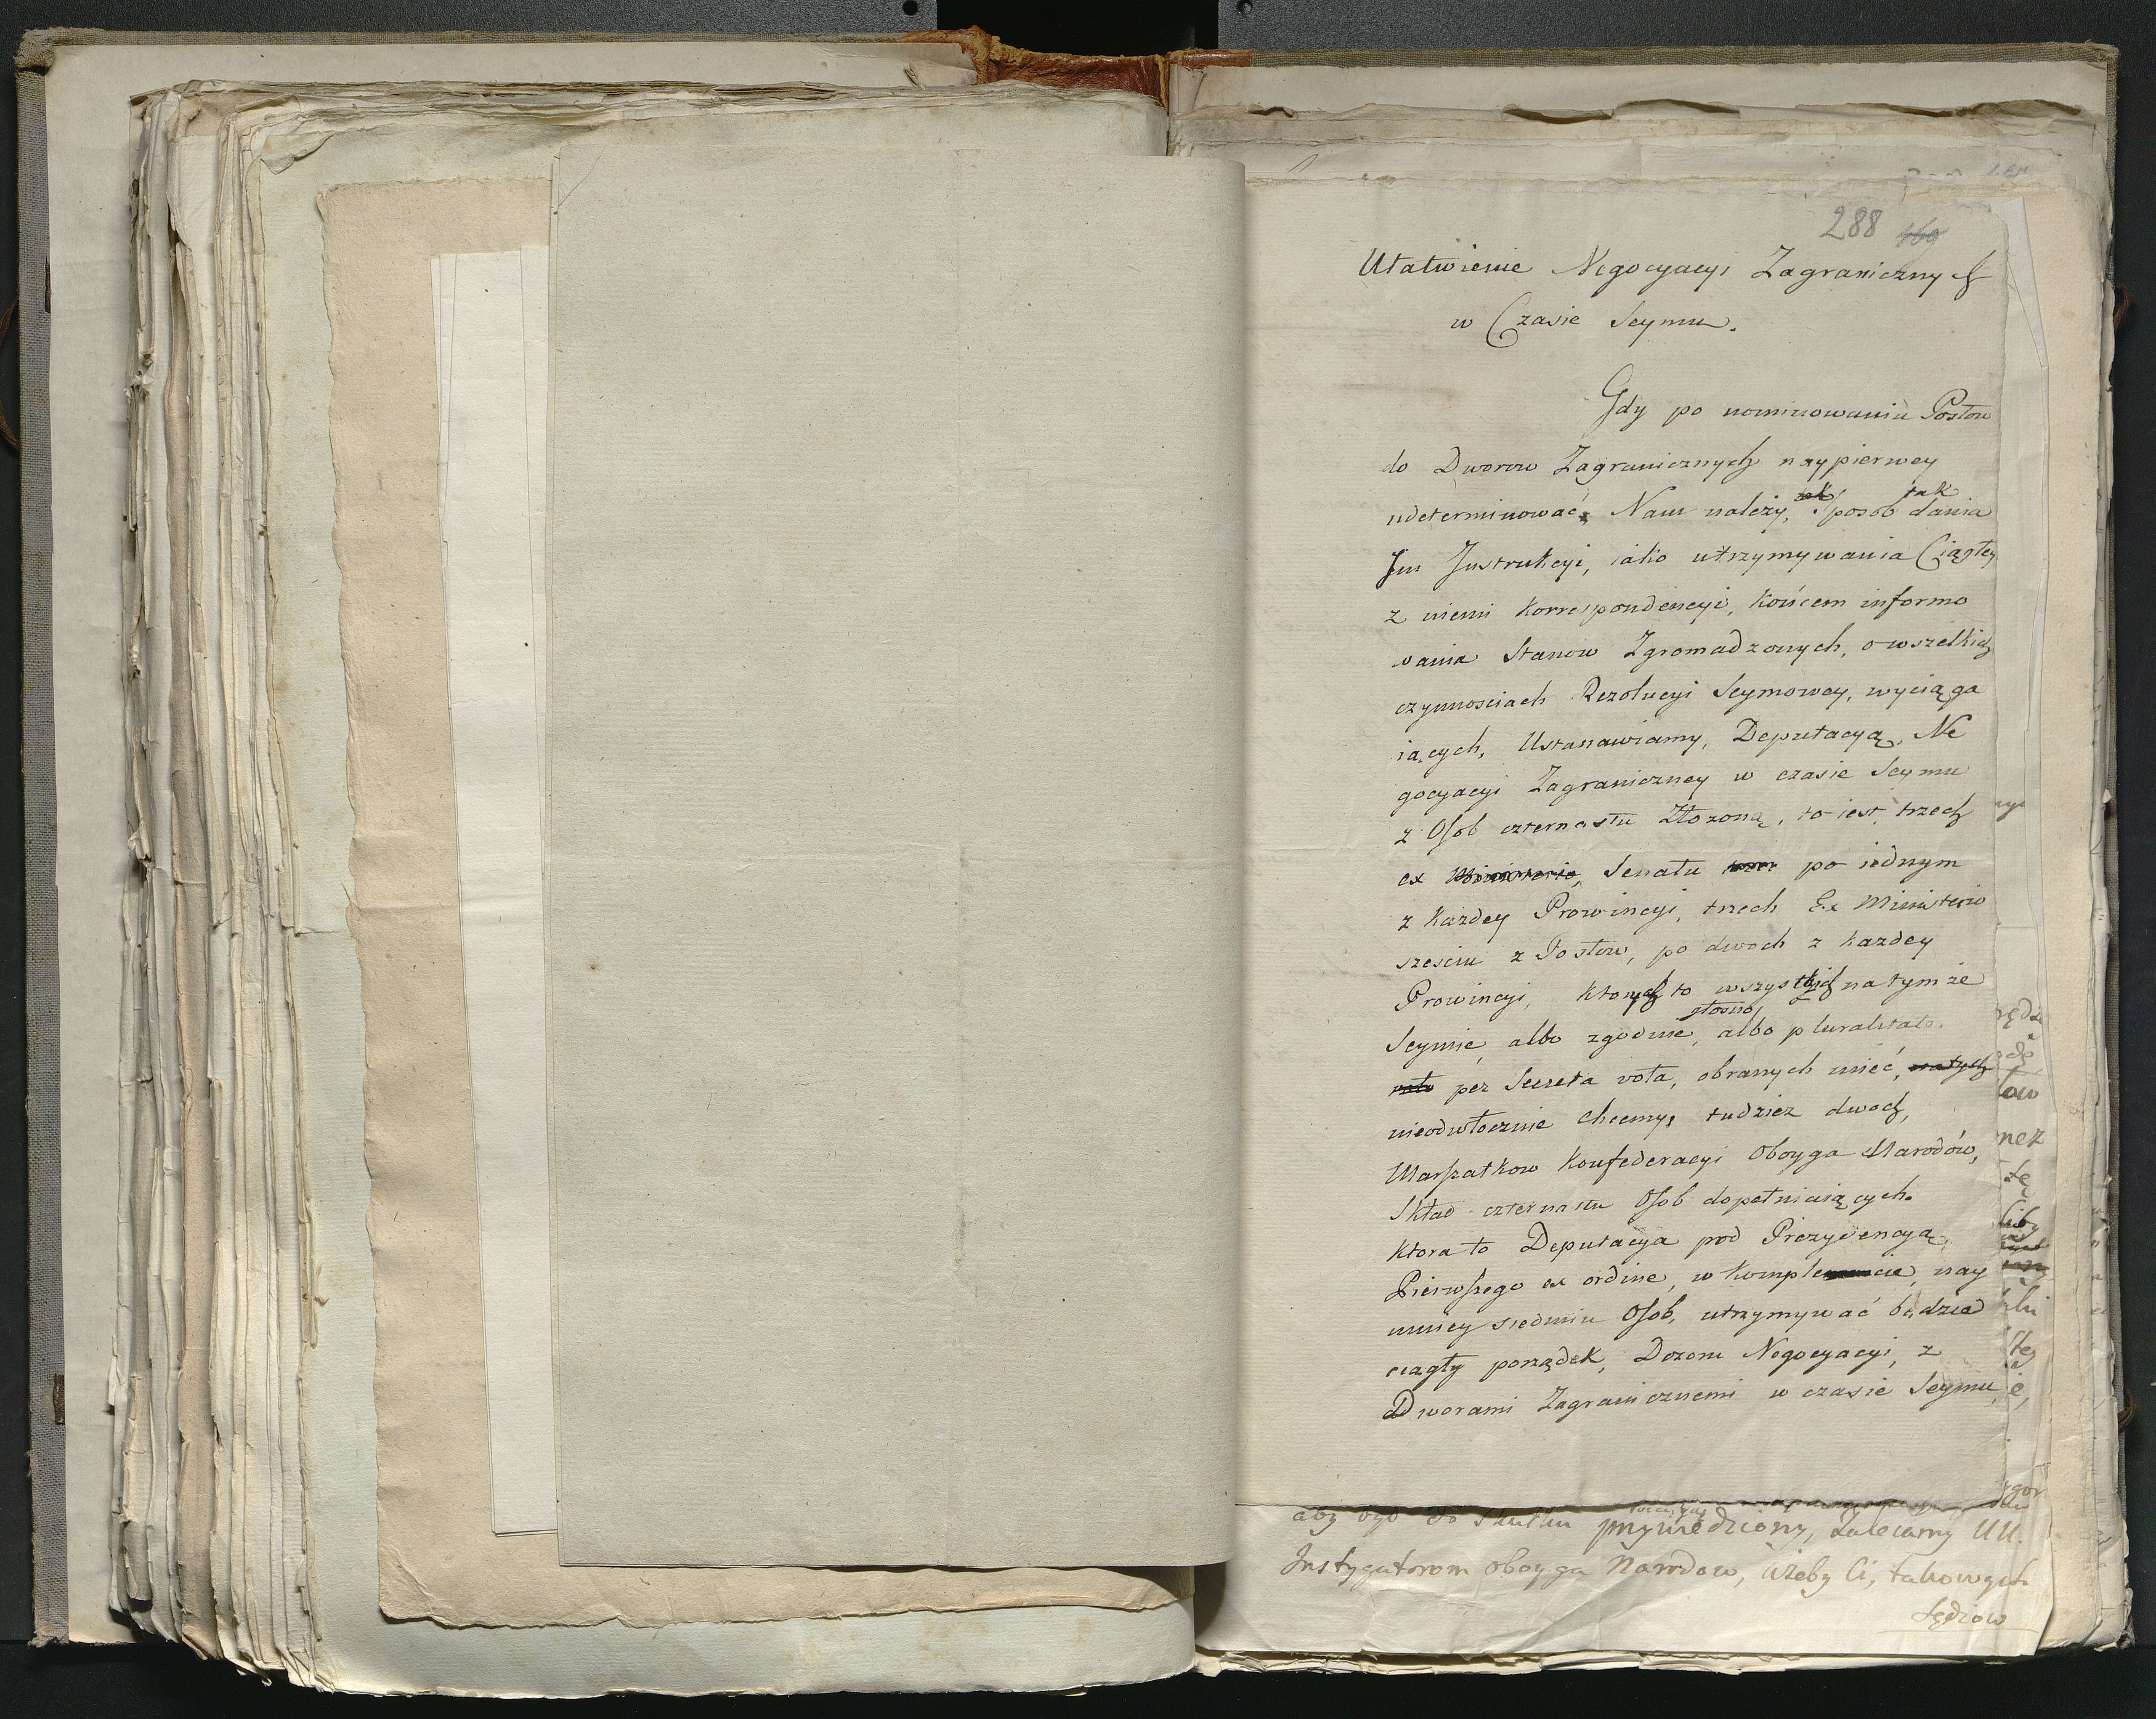 288 169
Ułatwienie Negocyacyi Zagranicznych
w Czasie Seymu.
Gdy po nominowaniu Posłow
do Dworow Zagranicznych naypierwey
udeterminować Nam należy, sposób tak dania
Jm Jnstrukcyi, iako utrzymywania Ciągłey
z niemi Korrespondencyi, Końcem informo
wania Stanow Zgromadzonych, o wszelkich
czynnosciach Rezolucyi Seymowey, wyciąga
iących, Ustanawiamy, Deputacyą, Ne
gocyacyi Zagraniczney w czasie Seymu
z Osob czternastu Złozoną, to iest, trzech
ex Ministerio, Senatu po iednym
z Kazdey Prowincyi, trzech Ex Ministerio
sześciu z Posłow, po dwoch z Kazdey
Prowincyi, Ktorych to wszystkich na tymże
Seymie, albo zgodnie, głosno, albo pluralitate
per Secreta vota, obranych mieć,
nieodwłocznie chcemy, tudziez dwoch,
Marszałkow Konfederacyi Oboyga Narodów,
Skład czternastu Osob dopełniaiących.
Ktora to Deputacya pod Prezydencyą
Pierwszego ex ordine, w Komplecie, nay
mniey siedmiu Osob, utrzymywać będzie
ciągły porządek, Dozoru Negocyacyi, z
Dworami Zagranicznemi w czasie Seymu,
aby był do skutku przywiedziony, zalecamy UU.
Jnstygatorom oboyga Narodow, ażeby Ci, takowych
Sędziow